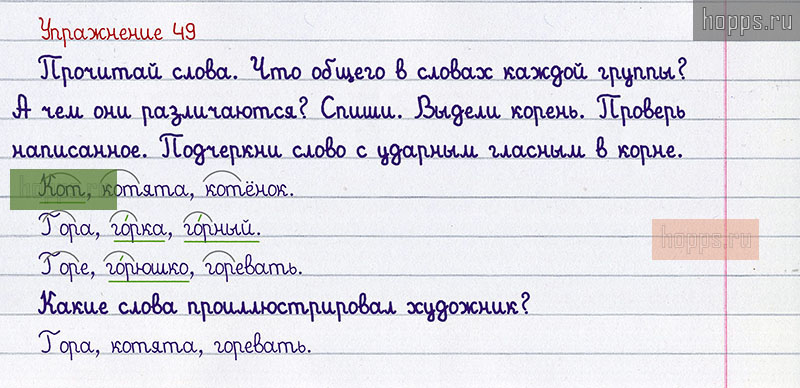 hopps.ru
Упражнение 49
Прочитай слова. Что общего в словах каждой группы?
А чем они различаются? Спиши. Выдели корень. Проверь
написанное. Подчеркни слово с ударным гласным в корне.
hopps.ru
Кот, котята, котёнок.
Гора, го́рка, го́рный.
hopps.ru
Горе, го́рюшко, горевать.
Какие слова проиллюстрировал художник?
Гора, котята, горевать.